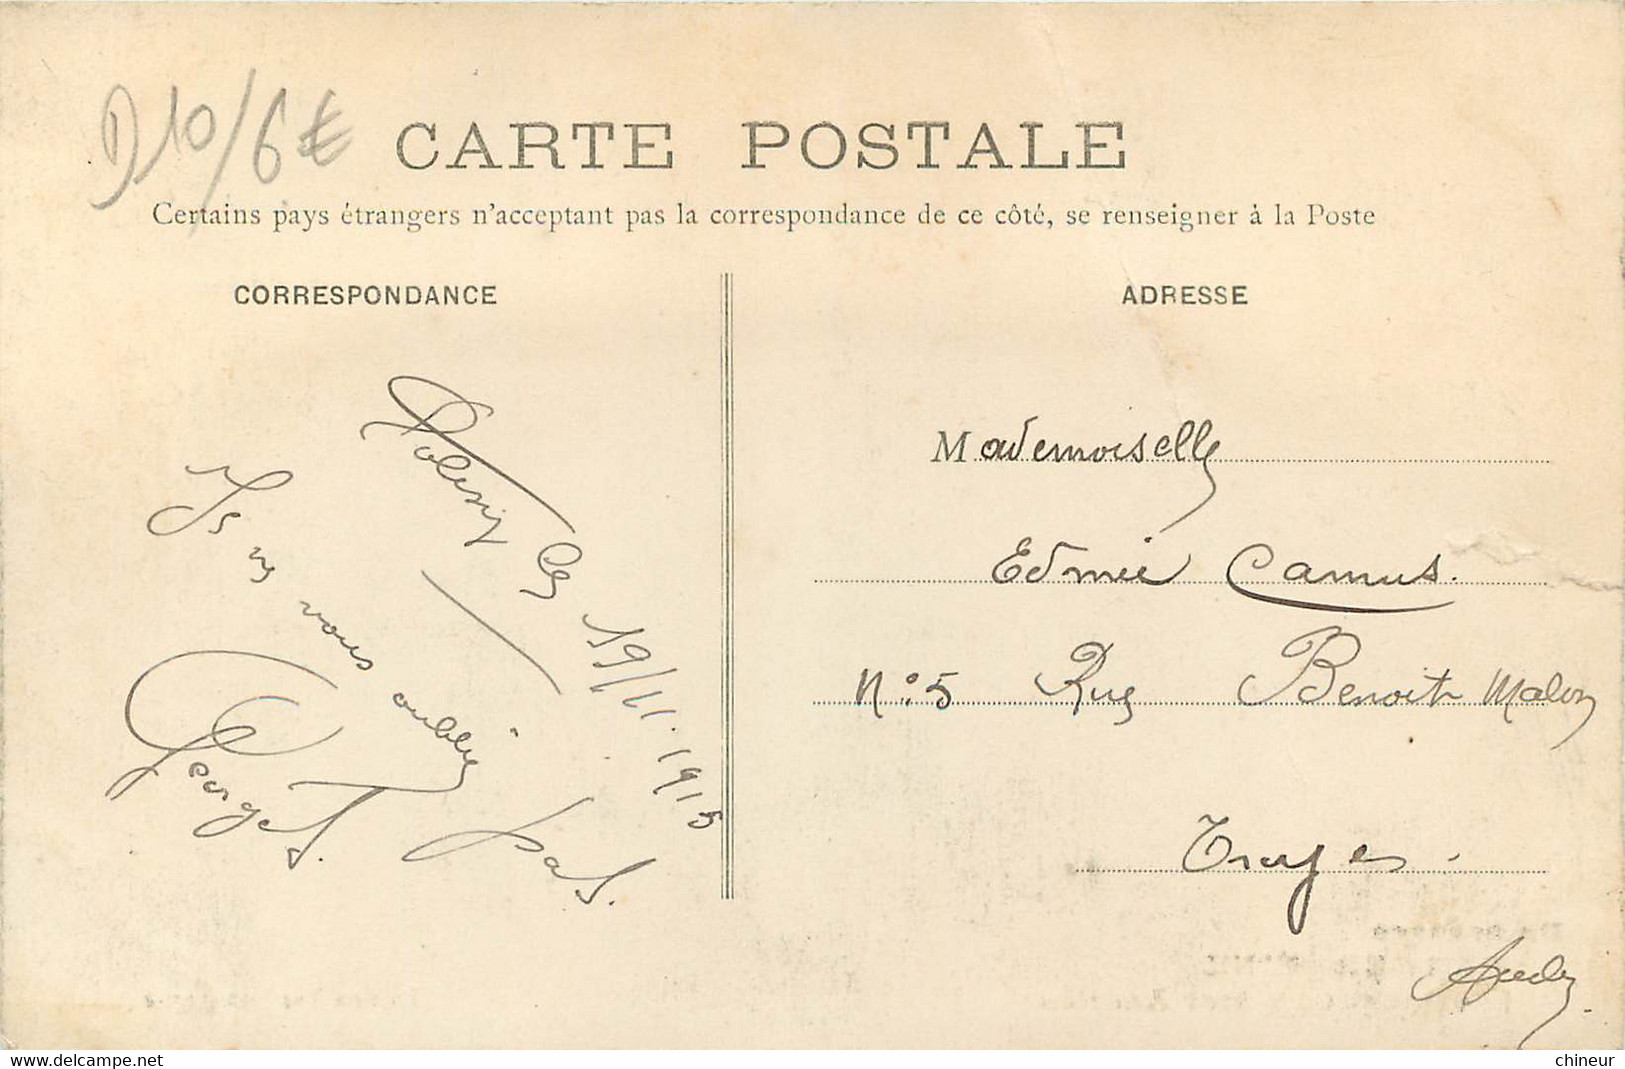 D10/6€
CARTE POSTALE
Certains pays étrangers n'acceptant pas la correspondance de ce côté, se renseigner à la Poste
CORRESPONDANCE
ce 19/11.1915
Je ne vous oublie pas.
Georges.
ADRESSE
Mademoiselle
Edmée Camus.
N°:5 Rue Benoit Malon
Troyes.
Aube.
https://www.delcampe.net
chineur